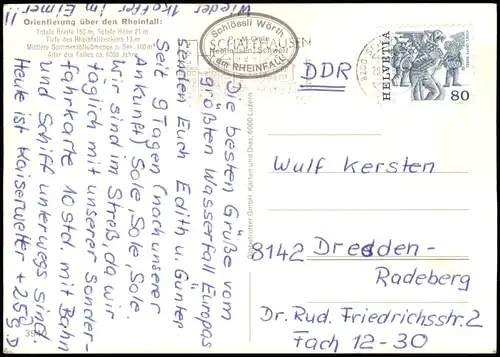 Orientierung über den Rheinfall:
Totale Breite 150 m, Totale Höhe 21 m
Tiefe des Rheinfallbeckens 13 m
Mittlere Sommerabflußmenge p. Sek. 700 m³
Alter des Falles ca. 6000 Jahre
Schlössli Wörth
Neuhausen/Schweiz
am RHEINFALL
SCHAFFHAUSEN
HELVETIA
80
DDR
Die besten Grüße vom
größten Wasserfall Europas
senden Euch Edith u. Günter
Seit 9 Tagen (nach unserer
Ankunft) Sole, Sole, Sole,
wir sind im Streß, da wir
täglich mit unserer Sonder-
fahrkarte 10 std. mit Bahn
und Schiff unterwegs sind
Heute ist Kaiserwetter +25g.
Wieder 1 Koffer im Eimer!!
Wulf Kersten
8142 Dresden-
Radeberg
Dr. Rud. Friedrichsstr. 2
Fach 12-30